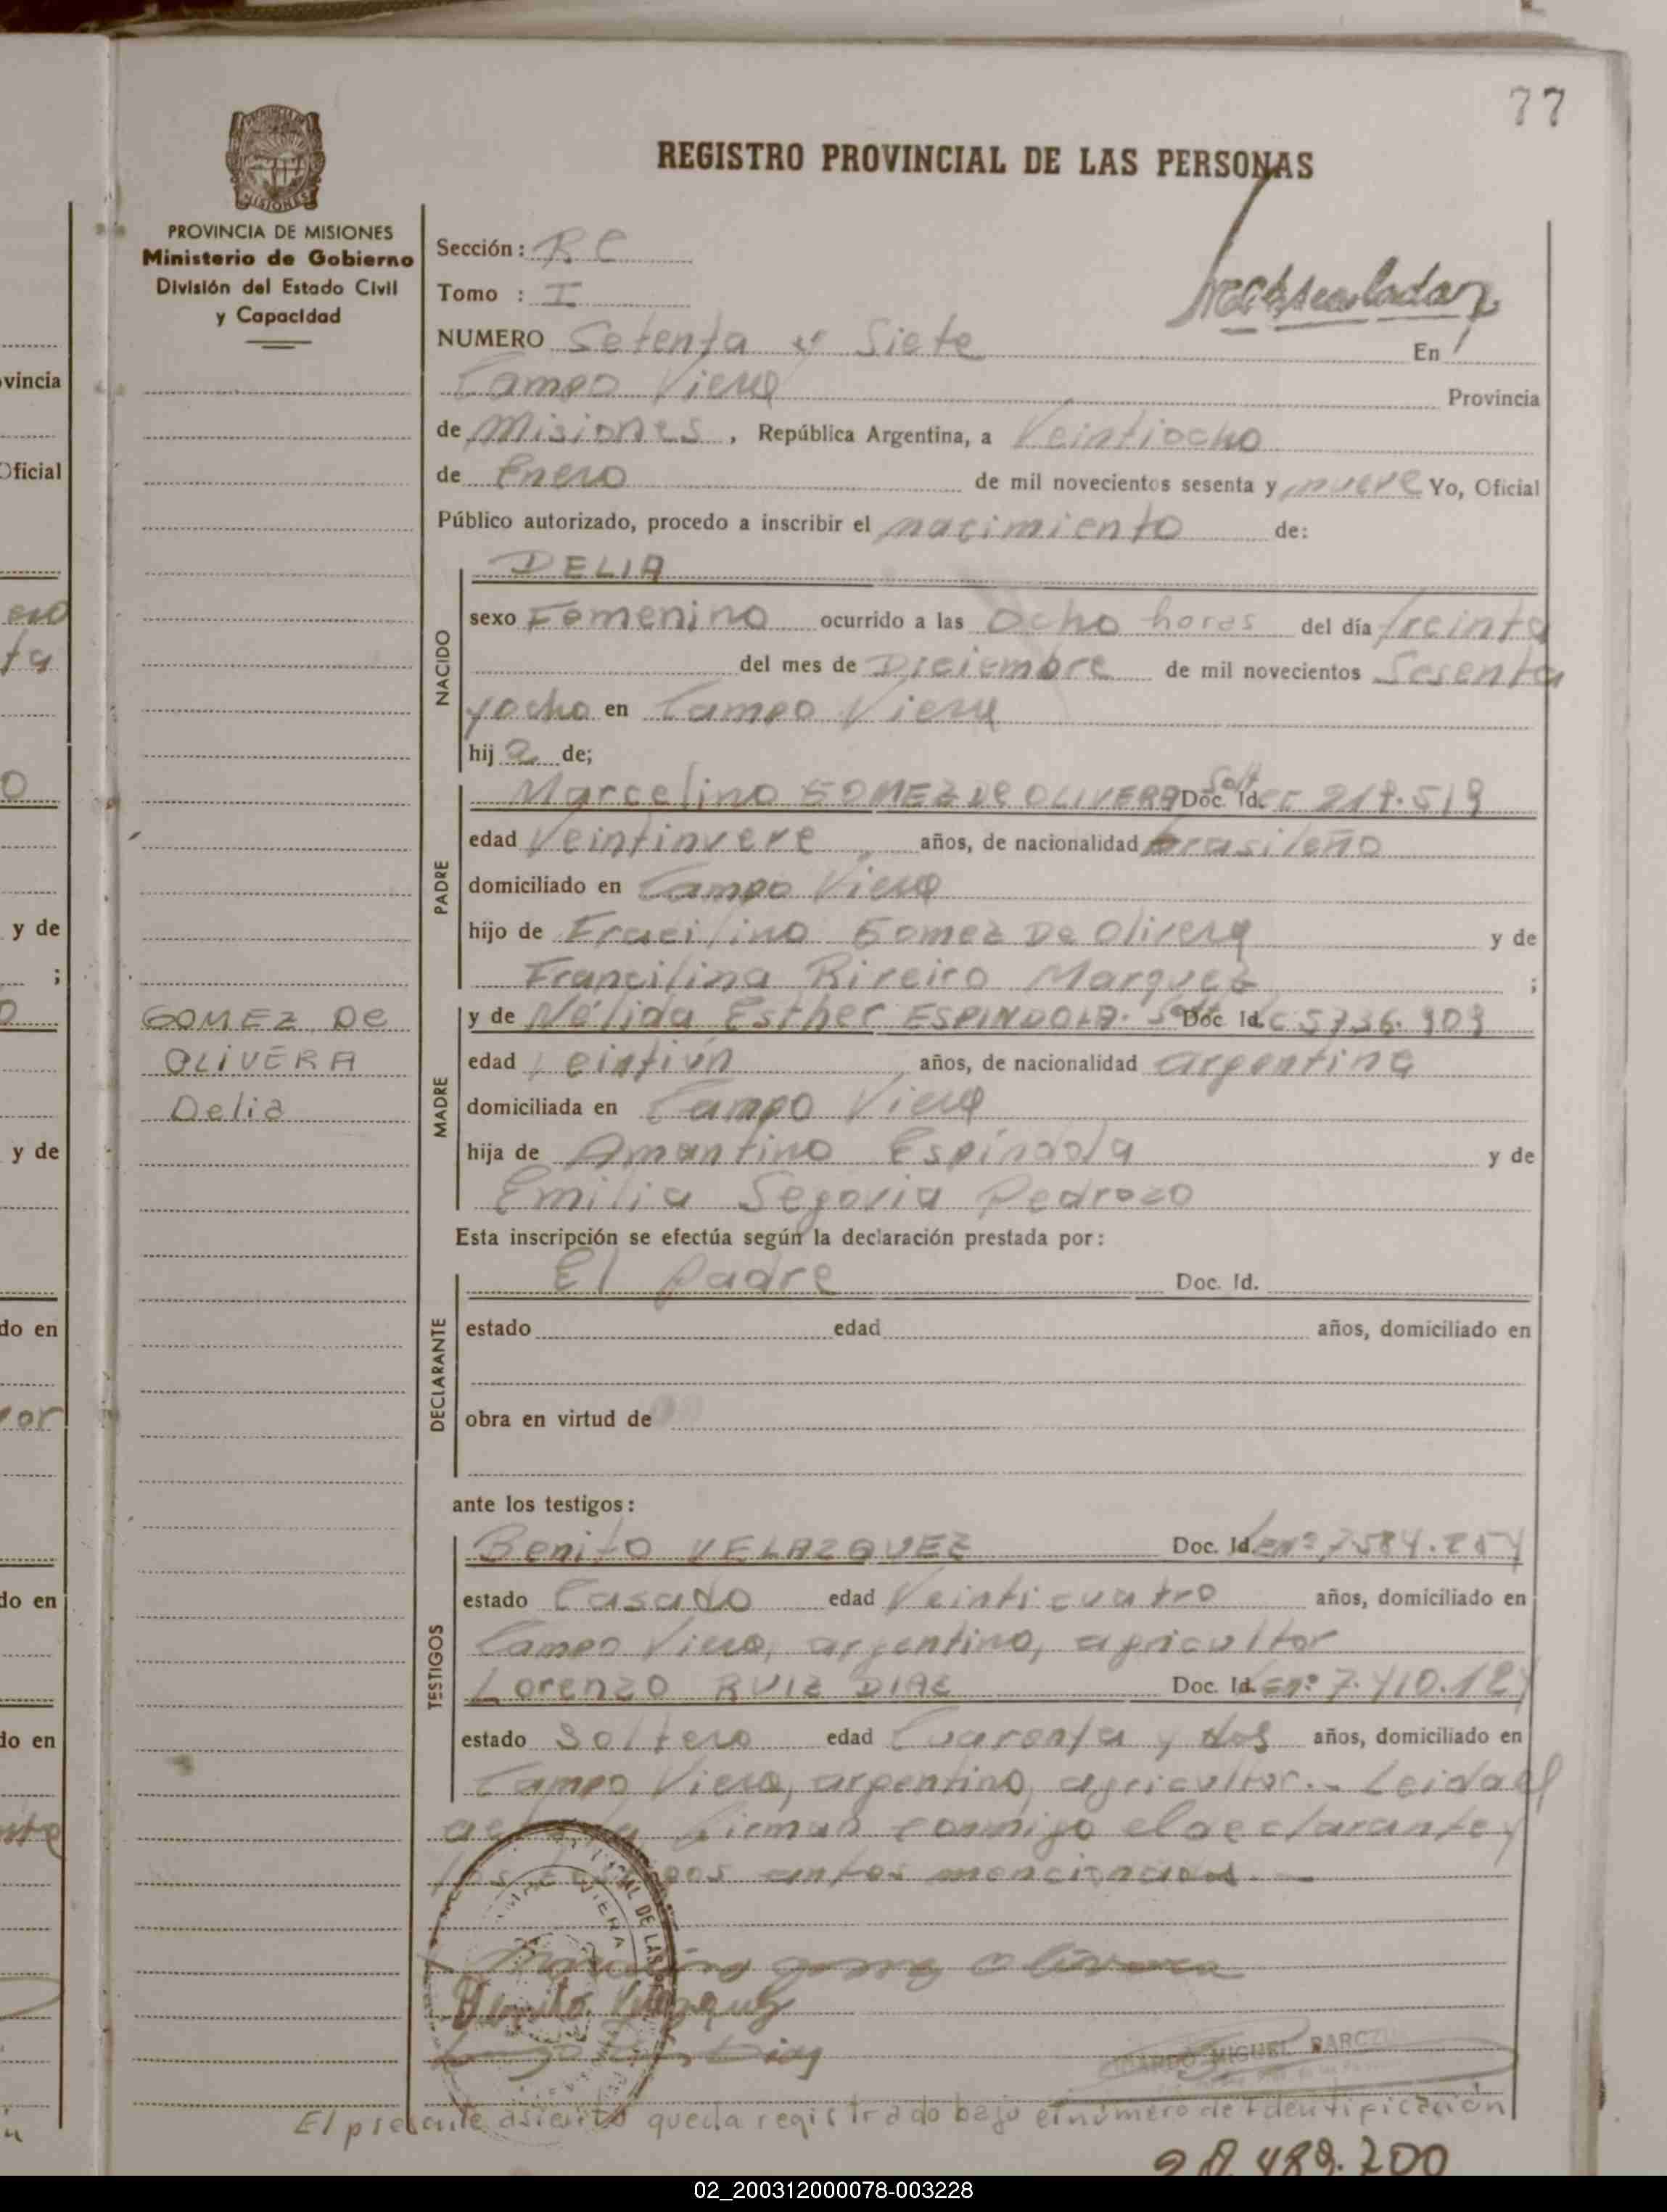 77
REGISTRO PROVINCIAL DE LAS PERSONAS
MISIONES
PROVINCIA DE MISIONES
Ministerio de Gobierno
División del Estado Civil
y Capacidad
Sección: RC
Tomo : I
NUMERO Setenta y Siete En
Campo Viera Provincia
de Misiones, República Argentina, a Veintiocho
de Enero de mil novecientos sesenta y nueve Yo, Oficial
Público autorizado, procedo a inscribir el nacimiento de:
NACIDO
DELIA
sexo Femenino ocurrido a las Ocho horas del día treinta
del mes de Diciembre de mil novecientos Sesenta
y ocho en Campo Viera
hija de;
PADRE
Marcelino GOMEZ DE OLIVERA Solt Doc. Id. 217.519
edad Veintinueve años, de nacionalidad brasileño
domiciliado en Campo Viera
hijo de Gomez De Olivera y de
Francilina Rireiro Marquez ;
GOMEZ De
OLIVERA
Delia
MADRE
y de Nélida Esther ESPINDOLA. Doc. Id. C 5736.909
edad Veintiún años, de nacionalidad argentina
domiciliada en Campo Viera
hija de Amantino Espíndola y de
Emilia Segovia Pedrozo
Esta inscripción se efectúa según la declaración prestada por:
DECLARANTE
El Padre Doc. Id.
estado edad años, domiciliado en
obra en virtud de
ante los testigos:
TESTIGOS
Benito VELAZQUEZ Doc. Id.
estado Casado edad Veinticuatro años, domiciliado en
Campo Viera, argentino, agricultor
Lorenzo RUIZ DIAZ Doc. Id.
estado Soltero edad Cuarenta y dos años, domiciliado en
Campo Viera, argentino, agricultor.- Leida el
acta, la firman conmigo el declarante y
los testigos antes mencionados.—
Benito Velazquez
MIGUEL BARCZU
El presente asiento queda registrado bajo el número de Identificación
20.489.200
vincia
Oficial
y de
;
y de
do en
do en
do en
02_200312000078-003228